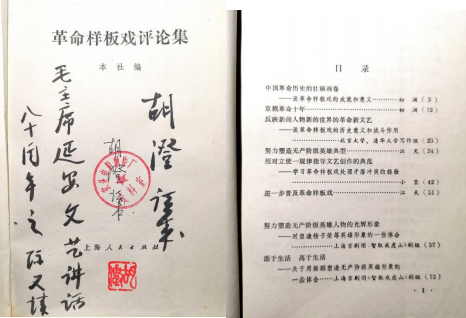 革命样板戏评论集
本社编
胡澄
毛主席延安文艺讲话
八十周年之际又读
上海人民出版社
目录
中国革命历史的壮丽画卷
——谈革命样板戏的成就和意义
京剧革命十年
反映新的人物新的世界的革命新文艺
——谈革命样板戏的历史意义和战斗作用
北京大学、清华大学写作组(23)
努力塑造无产阶级英雄典型 江天(34)
用对立统一规律指导文艺创作的典范
——学习革命样板戏处理矛盾冲突的经验
(42)
进一步普及革命样板戏 江天(51)
努力塑造无产阶级英雄人物的光辉形象
——对塑造杨子荣等英雄形象的一些体会
上海京剧团《智取威虎山》剧组(57)
源于生活 高于生活
——关于用舞蹈塑造无产阶级英雄形象的
一些体会 上海京剧团《智取威虎山》剧组(72)
· 1 ·